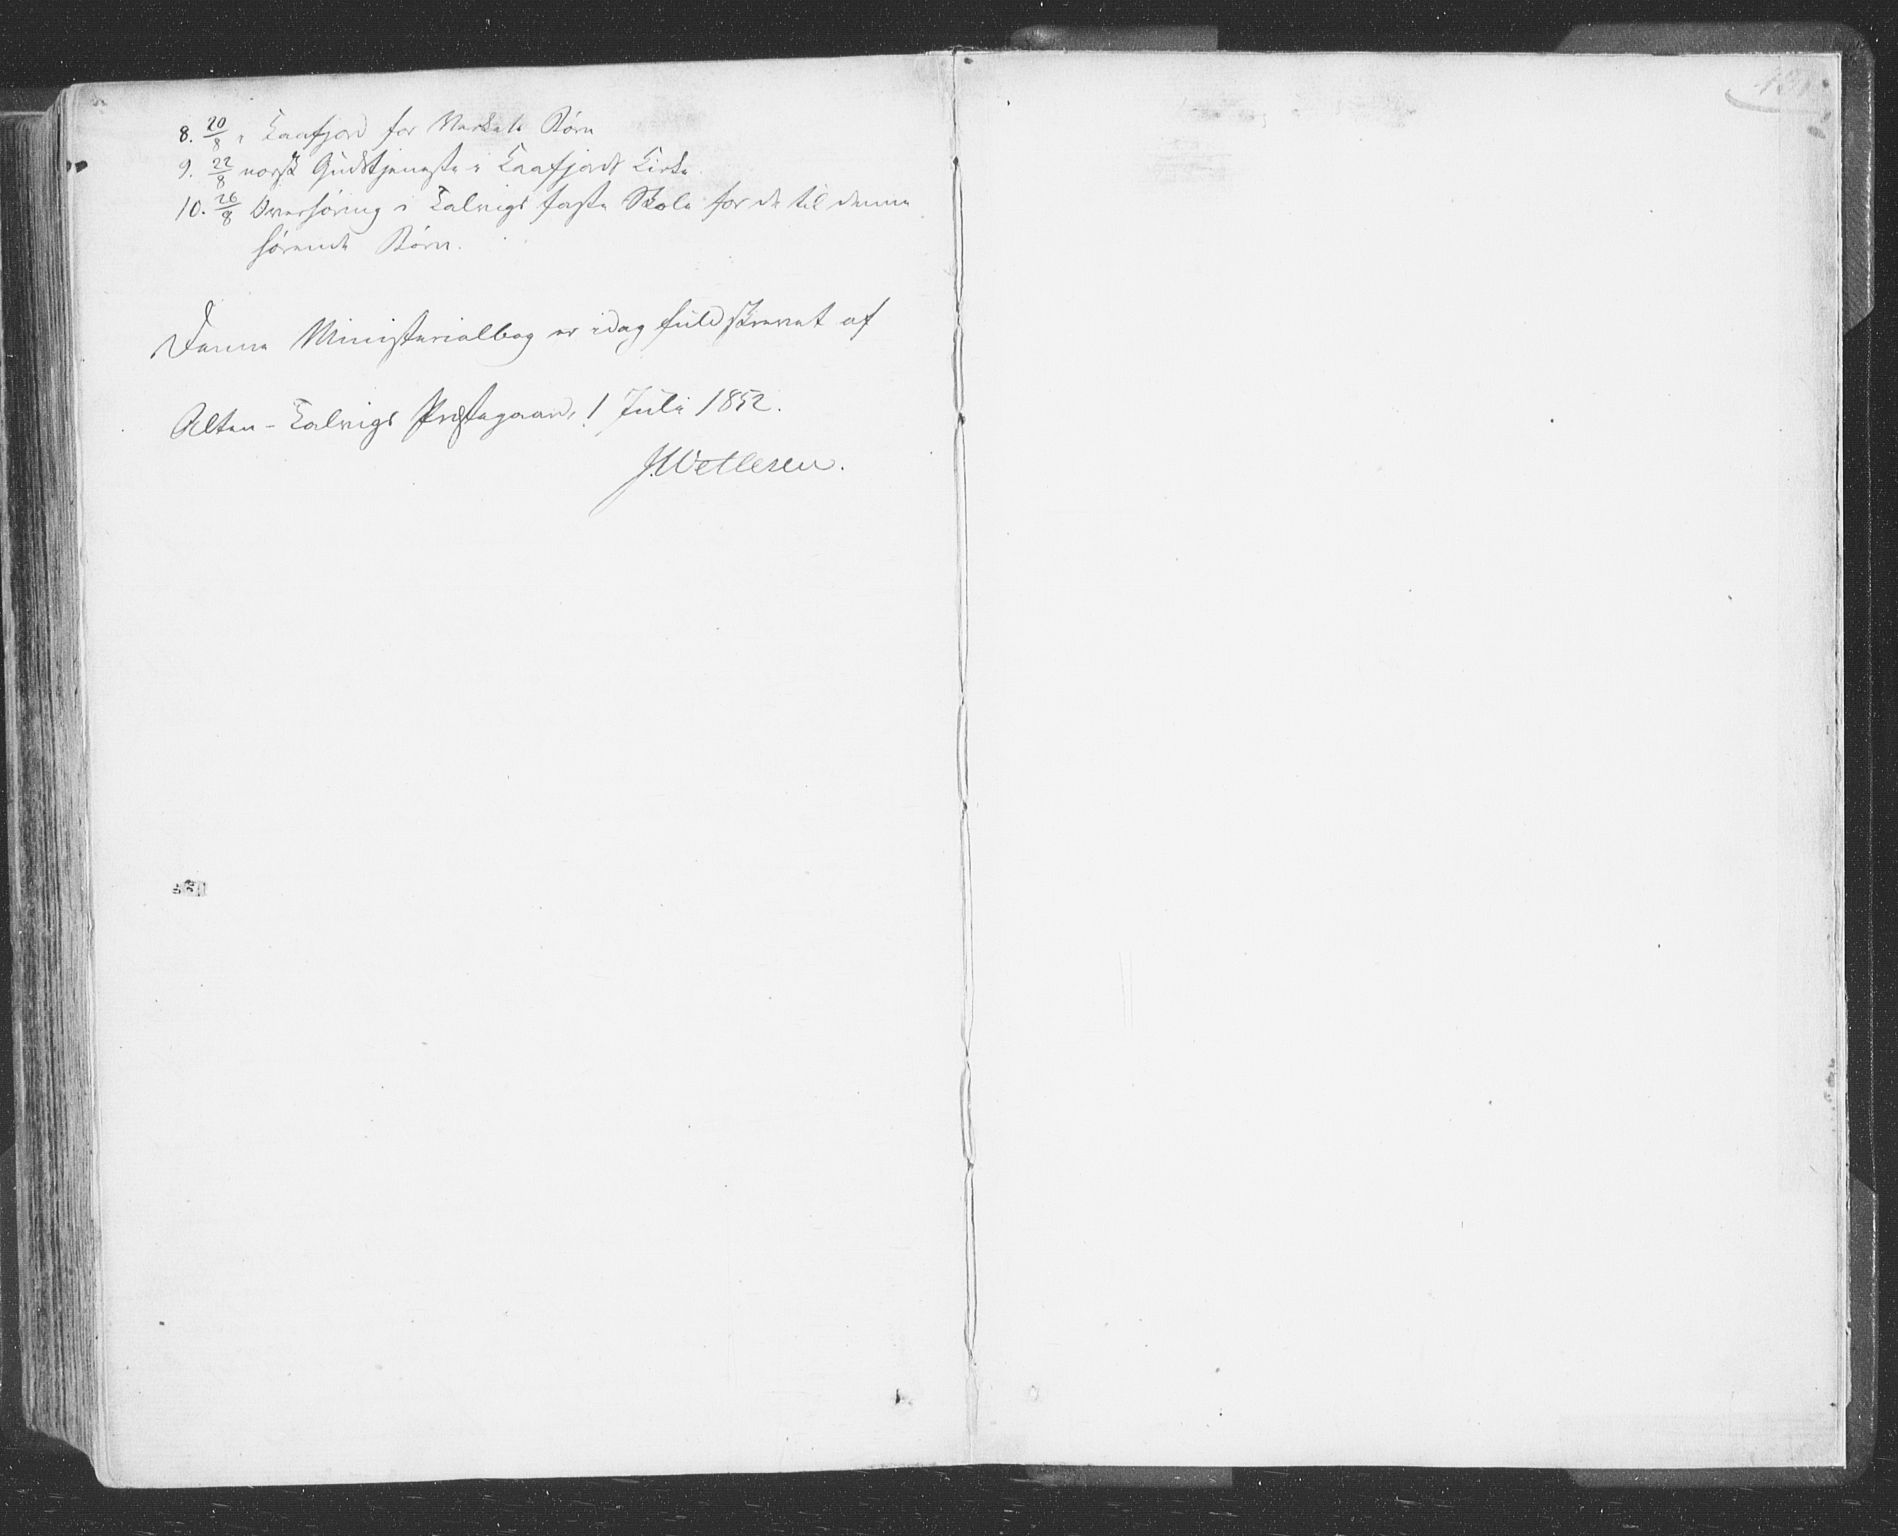 8. 20/8 i Kaafjord for Værkets Børn
9. 22/8 norsk Gudstjeneste i Kaafjords Kirke.
10. 26/8 Overhøring i Talvigs faste Skole for de til denne
hørende Børn.
Denne Ministerialbog er idag fuldskrevet af
Alten-Talvigs Præstegaard, 1 Juli 1852.
J. Wetlesen.